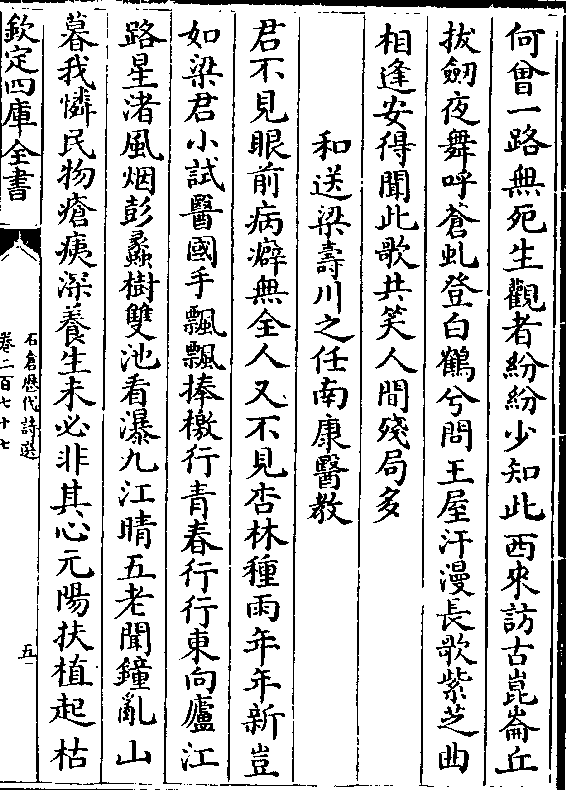 何曾一路無死生觀者紛紛少知此西來訪古崑崙丘
拔劒夜舞呼蒼虬登白鶴兮問王屋汗漫長歌紫芝曲
相逢安得聞此歌共笑人間殘局多
和送梁壽川之任南康醫教
君不見眼前病癖無全人又不見杏林種雨年年新豈
如梁君小試醫國手飄飄捧檄行青春行行東向廬江
路星渚風烟彭蠡樹雙池看瀑九江晴五老聞鐘亂山
暮我憐民物瘡痍深養生未必非其心元陽扶植起枯
欽定四庫全書
石倉歴代詩選
卷二百七十七
五